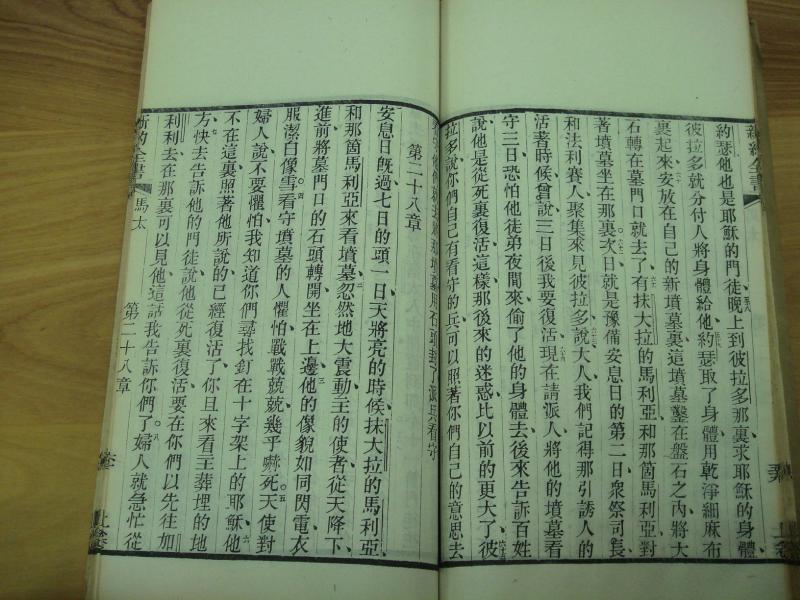 約瑟他也是耶穌的門徒晚上到彼拉多那裏求耶穌的身體、
彼拉多就分付人將身體給他、約瑟取了身體、用乾淨細麻布
裹起來、安放在自己的新墳墓裏、這墳墓鑿在盤石之內、將大
石轉在墓門口就去了、有抹大拉的馬利亞和那箇馬利亞對
著墳墓坐在那裏、次日就是豫備安息日的第二日、眾祭司長、
和法利賽人聚集來見彼拉多說、大人我們記得那引誘人的
活著時候、曾說三日後我要復活、現在請派人將他的墳墓看
守三日、恐怕他徒弟夜間來偷了他的身體去、後來告訴百姓
說他是從死裏復活、這樣那後來的迷惑比以前的更大了、彼
拉多說你們自己有看守的兵、可以照著你們自己的意思去
墳墓用石頭封了派兵看守
第二十八章
安息日旣過七日的頭一日天將亮的時候、抹大拉的馬利亞、
和那箇馬利亞來看墳墓、忽然地大震動、主的使者從天降下、
進前將墓門口的石頭轉開坐在上邊、他的像貌如同閃電、衣
服潔白像雪、看守墳墓的人懼怕、戰戰兢兢、幾乎嚇死。天使對
婦人說、不要懼怕、我知道你們尋找釘在十字架上的耶穌、他
不在這裏、照著他所說的已經復活了、你且來看主葬埋的地
方、快去告訴他的門徒說他從死裏復活、要在你們以先往加
利利去、在那裏可以見他、這話我告訴你們了。婦人就急忙從
新約全書
馬太
第二十八章